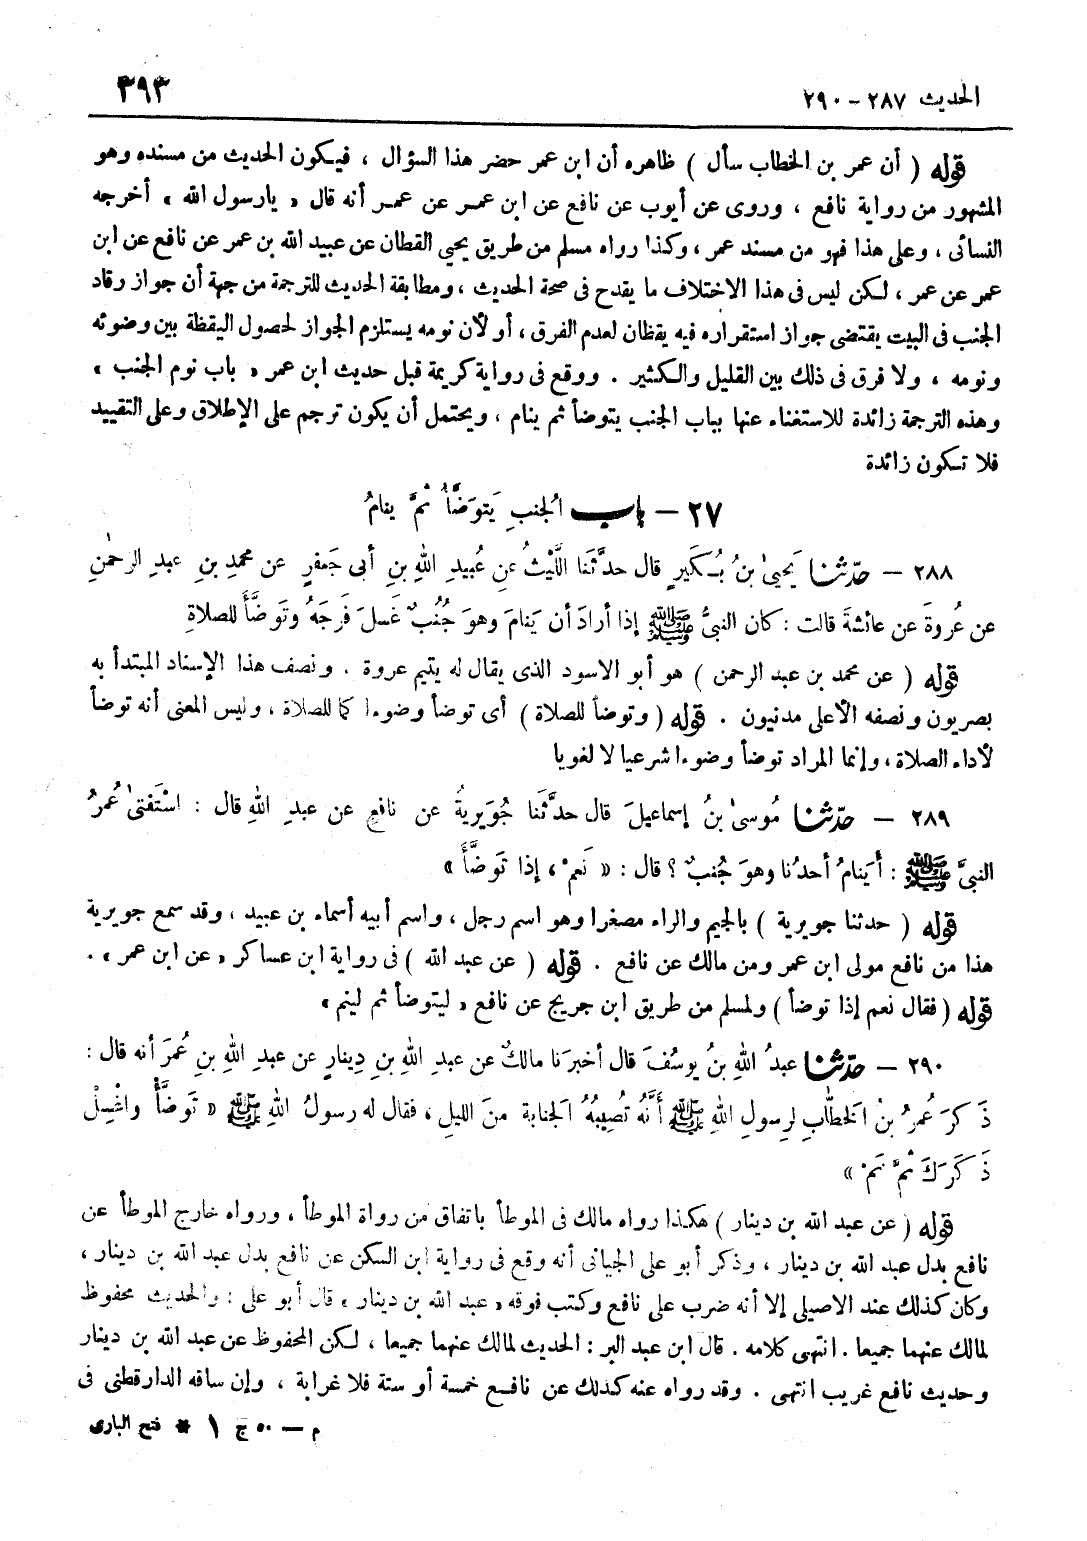 الحديث ٢٨٧ - ٢٩٠
٣٩٣
قوله ( أن عمر بن الخطاب سأل ) ظاهره أن ابن عمر حضر هذا السؤال ، فيكون الحديث من مسنده وهو
المشهور من رواية نافع ، وروى عن أيوب عن نافع عن ابن عمر عن عمر أنه قال « يارسول الله » أخرجه
النسائى ، وعلى هذا فهو من مسند عمر ، وكذا رواه مسلم من طريق يحيي القطان عن عبيد الله بن عمر عن نافع عن ابن
عمر عن عمر ، لكن ليس فى هذا الاختلاف ما يقدح فى صحة الحديث ، ومطابقة الحديث للترجمة من جهة أن جواز رقاد
الجنب فى البيت يقتضى جواز استقراره فيه يقظان لعدم الفرق ، أو لأن نومه يستلزم الجواز لحصول اليقظة بين وضوئه
ونومه ، ولا فرق فى ذلك بين القليل والكثير . ووقع فى رواية كريمة قبل حديث ابن عمر « باب نوم الجنب »
وهذه الترجمة زائدة للاستغناء عنها بباب الجنب يتوضأ ثم ينام ، ويحتمل أن يكون ترجم على الإطلاق وعلى التقييد
فلا تكون زائدة
٢٧ - باب الجنبِ يَتوَضَّأُ ثمَّ ينامُ
٢٨٨ - حدّثنا يَحيىٰ بنُ بُكَيرٍ قال حدَّثَنا اللَّيثُ عن عُبيدِ اللهِ بنِ أبى جَعفرٍ عن محمدِ بنِ عبدِ الرحمٰنِ
عن عُروةَ عن عائشةَ قالت : كان النبىُّ ﷺ إذا أرادَ أن يَنامَ وهوَ جُنُبٌ غَسلَ فَرجَهُ وتَوضَّأَ للصلاةِ
قوله ( عن محمد بن عبد الرحمن ) هو أبو الاسود الذى يقال له يتيم عروة . ونصف هذا الإسناد المبتدأ به
بصريون ونصفه الأعلى مدنيون . قوله ( وتوضأ للصلاة ) أى توضأ وضوءا كما للصلاة ، وليس المعنى أنه توضأ
لأداء الصلاة ، وإنما المراد توضأ وضوءا شرعيا لا لغويا
٢٨٩ - حدّثنا مُوسىٰ بنُ إسماعيلَ قال حدَّثَنا جُوَيريةُ عن نافعٍ عن عبدِ اللهِ قال : اسْتَفتىٰ عُمرُ
النبىَّ ﷺ : أيَنامُ أحدُنا وهوَ جُنبٌ ؟ قال : « نَعمْ ، إذا تَوضَّأَ »
قوله ( حدثنا جويرية ) بالجيم والراء مصغرا وهو اسم رجل ، واسم أبيه أسماء بن عبيد ، وقد سمع جويرية
هذا من نافع مولى ابن عمر ومن مالك عن نافع . قوله ( عن عبد الله ) فى رواية ابن عساكر « عن ابن عمر » .
قوله ( فقال نعم إذا توضأ ) ولمسلم من طريق ابن جريج عن نافع « ليتوضأ ثم لينم »
٢٩٠ - حدّثنا عبدُ اللهِ بنُ يوسُفَ قال أخبرَنا مالكٌ عن عبدِ اللهِ بنِ دِينارٍ عن عبدِ اللهِ بنِ عُمرَ أنه قال :
ذَكرَ عُمرُ بنُ الخطَّابِ لرِسولِ اللهِ ﷺ أنَّهُ تُصِيبُهُ الجنابة منَ الليلِ ، فقال له رسولُ اللهِ ﷺ « تَوضَّأْ واغْسِلْ
ذَكَرَكَ ثمَّ نَمْ »
قوله ( عن عبد الله بن دينار ) هكذا رواه مالك فى الموطأ باتفاق من رواة الموطأ ، ورواه خارج الموطأ عن
نافع بدل عبد الله بن دينار ، وذكر أبو على الجيانى أنه وقع فى رواية ابن السكن عن نافع بدل عبد الله بن دينار ،
وكان كذلك عند الاصيلى إلا أنه ضرب على نافع وكتب فوقه « عبد الله بن دينار » قال أبو على : والحديث محفوظ
لمالك عنهما جميعا . انتهى كلامه . قال ابن عبد البر : الحديث لمالك عنهما جميعا ، لكن المحفوظ عن عبد الله بن دينار
وحديث نافع غريب انتهى . وقد رواه عنه كذلك عن نافع خمسة أو ستة فلا غرابة ، وإن ساقه الدارقطنى فى
م - ٥٠ ج ١ * فتح البارى